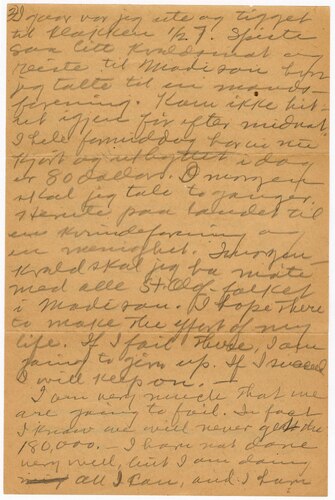 3) I gaar var jeg ute og tigget
til klokken ½ 7. Spiste
saa litt kveldsmat og
reiste til Madison hvor
jeg talte til en mands-
forening. Kom ikke hit
ut igjen før efter midnat
I hele formiddag har vi
kjørt og i dag
er 80 dollars. I morgen
skal jeg tale to ganger.
Herute paa landet til
en kvindeforening og
en menighet. Imorgen
kveld skal jeg ha møte
med alle St. Olaf-folket
i Madison. I hope there
to make the effort of my
life. If I fail there, I am
going to give up. If I succeed
I will keep on. —
I am very much that we
are going to fail. In fact
I know we will never get the
180,000. — I have not done
very well, but I am doing
all I can, and I